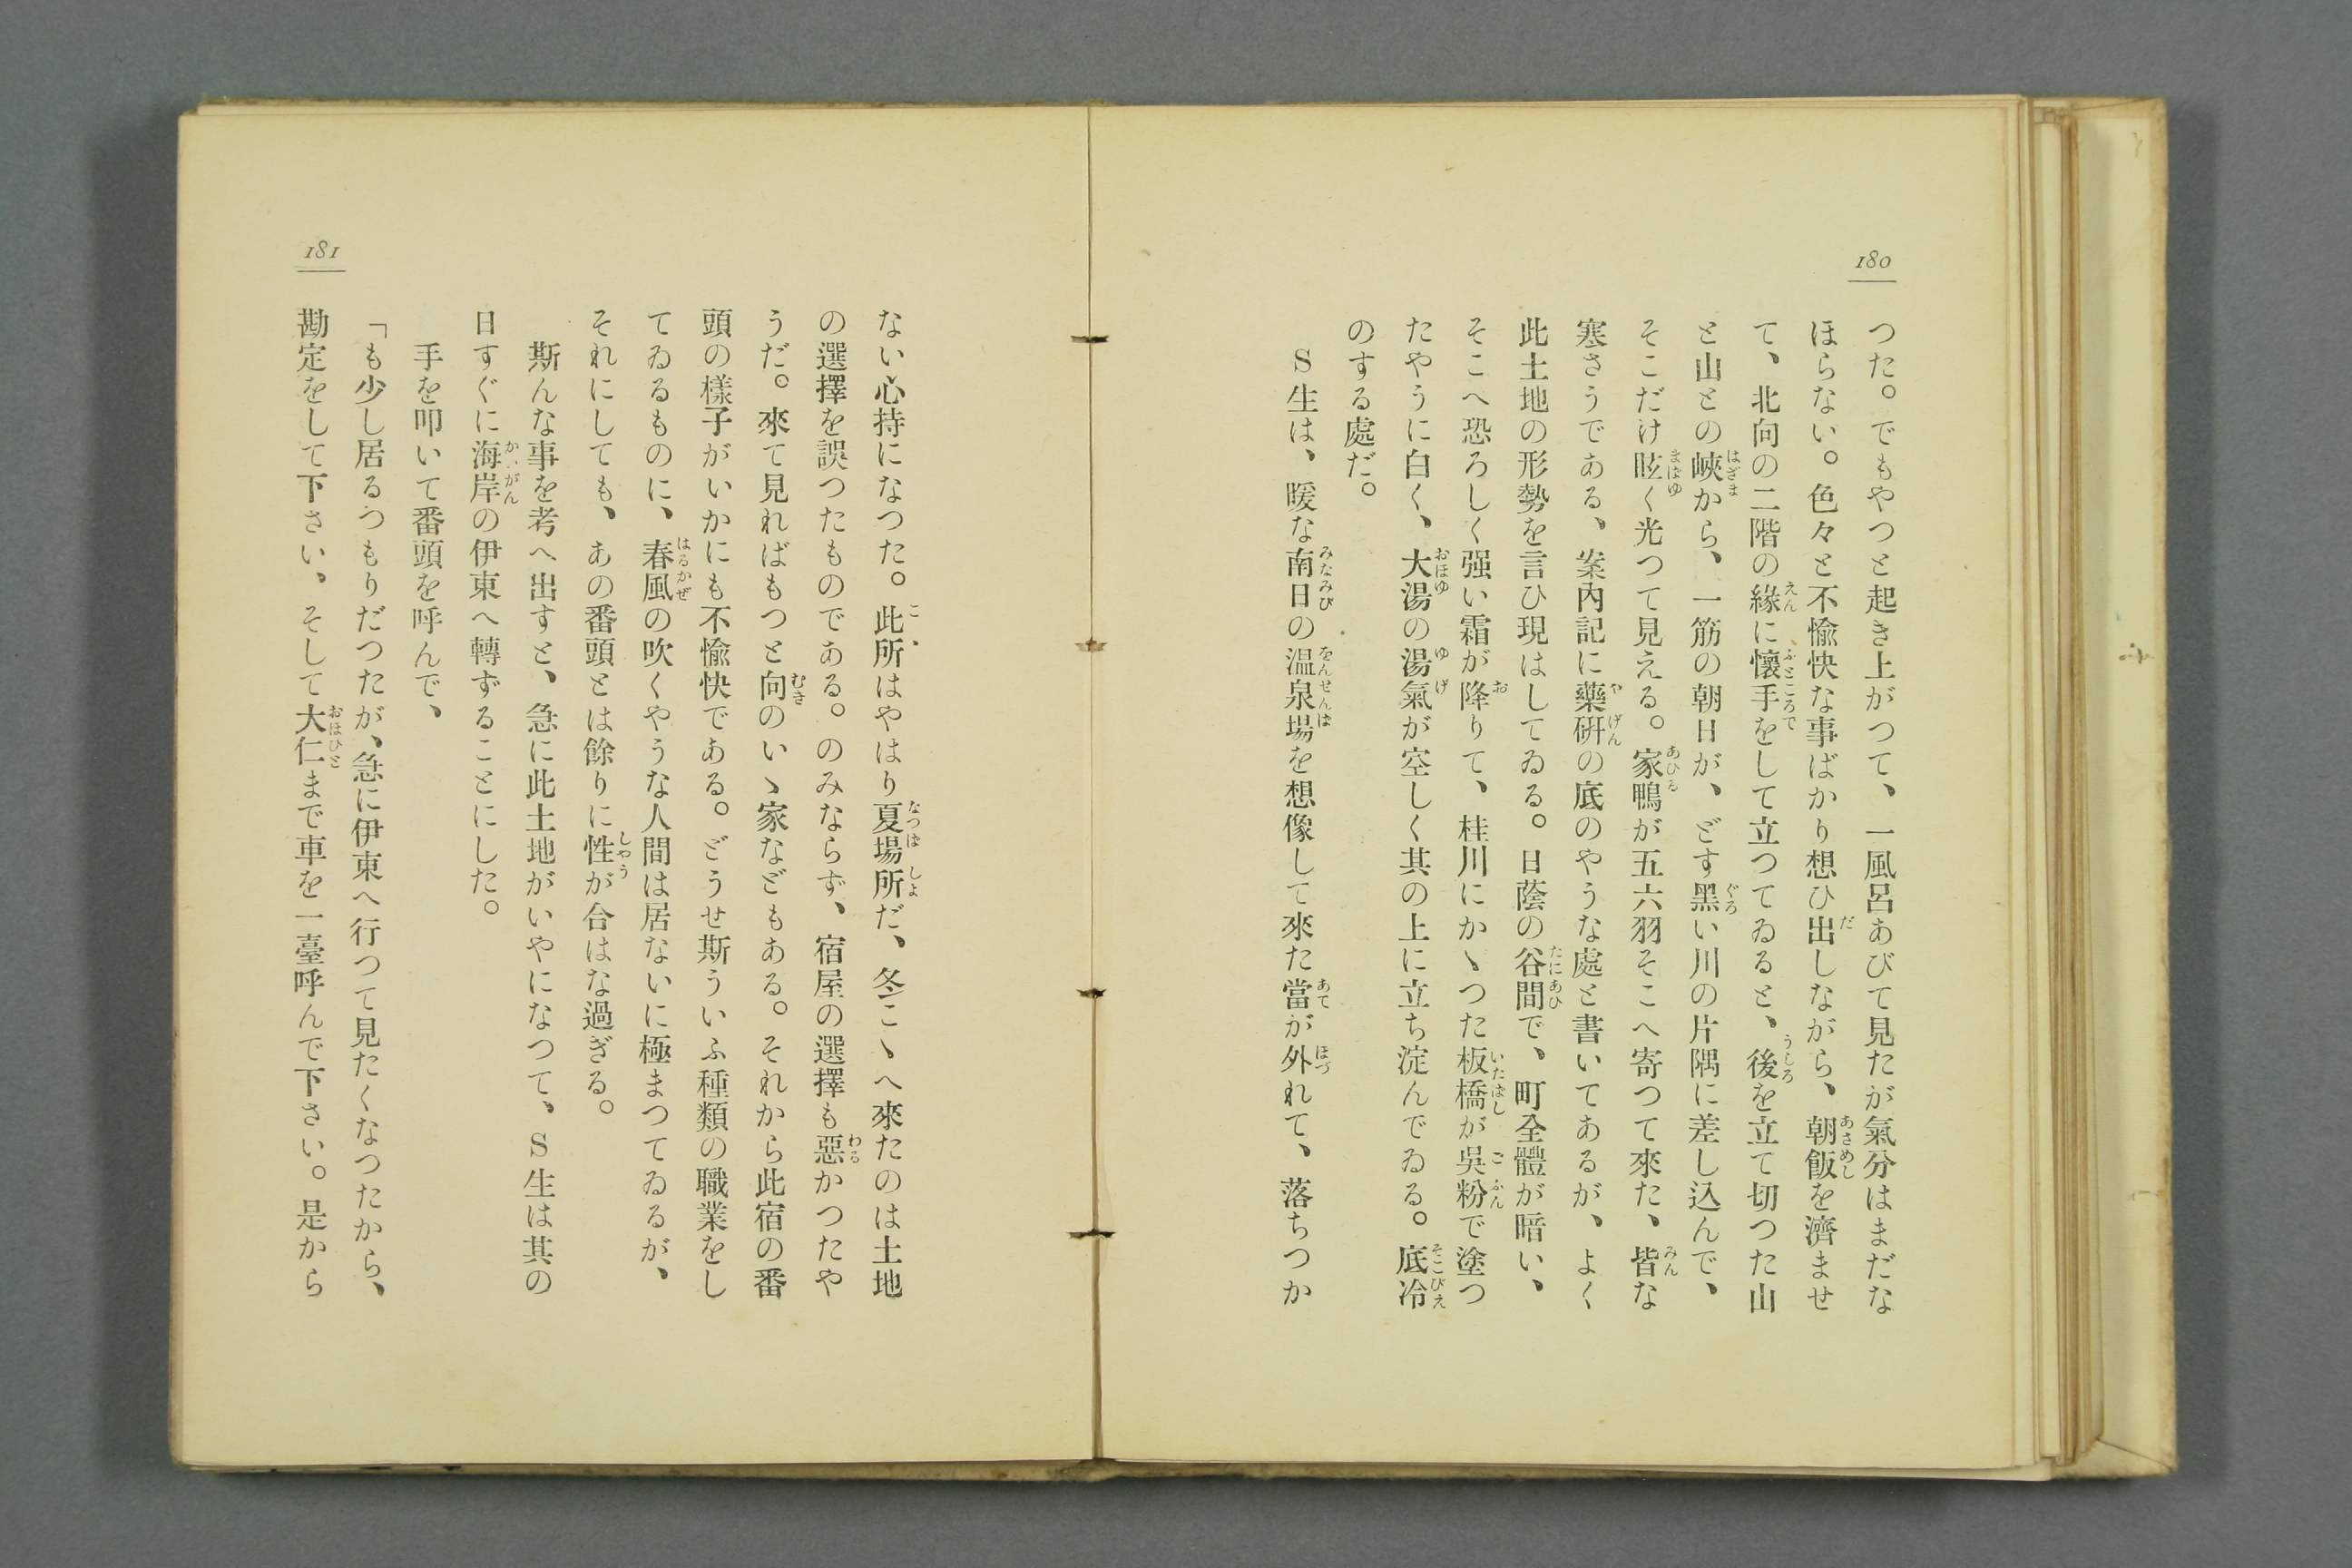 180
つた。でもやつと起き上がつて、一風呂あびて見たが氣分はまだな
ほらない。色々と不愉快な事ばかり想ひ出しながら、朝飯を濟ませ
て、北向の二階の緣に懷手をして立つてゐると、後を立て切つた山
と山との峽から、一筋の朝日が、どす黑い川の片隅に差し込んで、
そこだけ眩く光つて見える。家鴨が五六羽そこへ寄つて來た、皆な
寒さうである、案內記に藥硏の底のやうな處と書いてあるが、よく
此土地の形勢を言ひ現はしてゐる。日蔭の谷間で、町全體が暗い、
そこへ恐ろしく强い霜が降りて、桂川にかゝつた板橋が吳粉で塗つ
たやうに白く、大湯の湯氣が空しく其の上に立ち淀んでゐる。底冷
のする處だ。
S生は、暖な南日の温泉場を想像して來た當が外れて、落ちつか
181
ない心持になつた。此所はやはり夏場所だ、冬こゝへ來たのは土地
の選擇を誤つたものである。のみならず、宿屋の選擇も惡かつたや
うだ。來て見ればもつと向のいゝ家などもある。それから此宿の番
頭の樣子がいかにも不愉快である。どうせ斯ういふ種類の職業をし
てゐるものに、春風の吹くやうな人間は居ないに極まつてゐるが、
それにしても、あの番頭とは餘りに性が合はな過ぎる。
斯んな事を考へ出すと、急に此土地がいやになつて、S生は其の
日すぐに海岸の伊東へ轉ずることにした。
手を叩いて番頭を呼んで、
「も少し居るつもりだつたが、急に伊東へ行つて見たくなつたから、
勘定をして下さい、そして大仁まで車を一臺呼んで下さい。是から